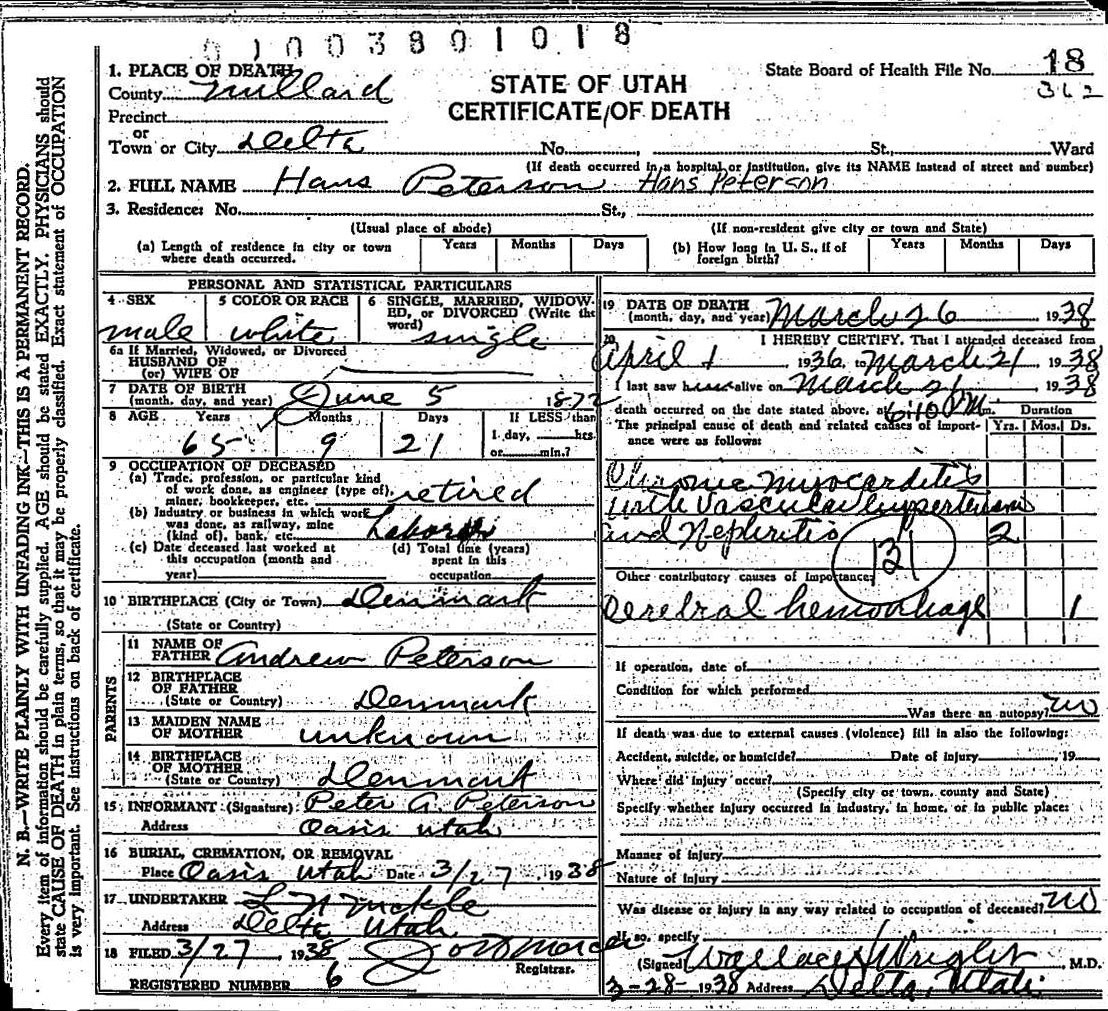 01003801018
State Board of Health File No. 18
362
STATE OF UTAH
CERTIFICATE OF DEATH
1. PLACE OF DEATH
County Millard
Precinct
or
Town or City Delta No. St., Ward
(If death occurred in a hospital or institution, give its NAME instead of street and number)
2. FULL NAME Hans Peterson Hans Peterson
3. Residence: No. St.,
(Usual place of abode) (If non-resident give city or town and State)
(a) Length of residence in city or town where death occurred. Years Months Days
(b) How long in U. S., if of foreign birth? Years Months Days
PERSONAL AND STATISTICAL PARTICULARS
4 SEX male
5 COLOR OR RACE white
6 SINGLE, MARRIED, WIDOWED, or DIVORCED (Write the word) single
6a If Married, Widowed, or Divorced
HUSBAND OF
(or) WIFE OF
7 DATE OF BIRTH
(month, day, and year) June 5 1872
8 AGE Years Months Days If LESS than
65 9 21 1 day, hrs.
or min.?
9 OCCUPATION OF DECEASED
(a) Trade, profession, or particular kind
of work done, as engineer (type of), retired
miner, bookkeeper, etc.
(b) Industry or business in which work
was done, as railway, mine
(kind of), bank, etc. Laborer
(c) Date deceased last worked at
this occupation (month and
year)
(d) Total time (years)
spent in this
occupation
10 BIRTHPLACE (City or Town) Denmark
(State or Country)
PARENTS
11 NAME OF
FATHER Andrew Peterson
12 BIRTHPLACE
OF FATHER
(State or Country) Denmark
13 MAIDEN NAME
OF MOTHER unknown
14 BIRTHPLACE
OF MOTHER
(State or Country) Denmark
15 INFORMANT (Signature) Peter A. Peterson
Address Oasis Utah
16 BURIAL, CREMATION, OR REMOVAL
Place Oasis Utah Date 3/27 1938
17 UNDERTAKER L N
Address Delta Utah
18 FILED 3/27 1938
Registrar.
REGISTERED NUMBER 6
19 DATE OF DEATH
(month, day, and year) March 26 1938
20 I HEREBY CERTIFY, That I attended deceased from
April 1 1936, to March 21 1938
I last saw him alive on March 21 1938
death occurred on the date stated above, at 6:10 P.M. m. Duration
The principal cause of death and related causes of importance were as follows: Yrs. Mos. Ds.
Chronic Myocarditis
with Vascular hypertension
and Nephritis 2
131
Other contributory causes of importance:
Cerebral hemorrhage 1
If operation, date of
Condition for which performed
Was there an autopsy? no
If death was due to external causes (violence) fill in also the following:
Accident, suicide, or homicide? Date of injury 19
Where did injury occur?
(Specify city or town, county and State)
Specify whether injury occurred in industry, in home, or in public place:
Manner of injury
Nature of injury
Was disease or injury in any way related to occupation of deceased? no
If so, specify
(Signed) Wright M.D.
3-28-1938 Address Delta, Utah
N. B.—WRITE PLAINLY WITH UNFADING INK—THIS IS A PERMANENT RECORD.
Every item of information should be carefully supplied. AGE should be stated EXACTLY. PHYSICIANS should
state CAUSE OF DEATH in plain terms, so that it may be properly classified. Exact statement of OCCUPATION
is very important. See instructions on back of certificate.